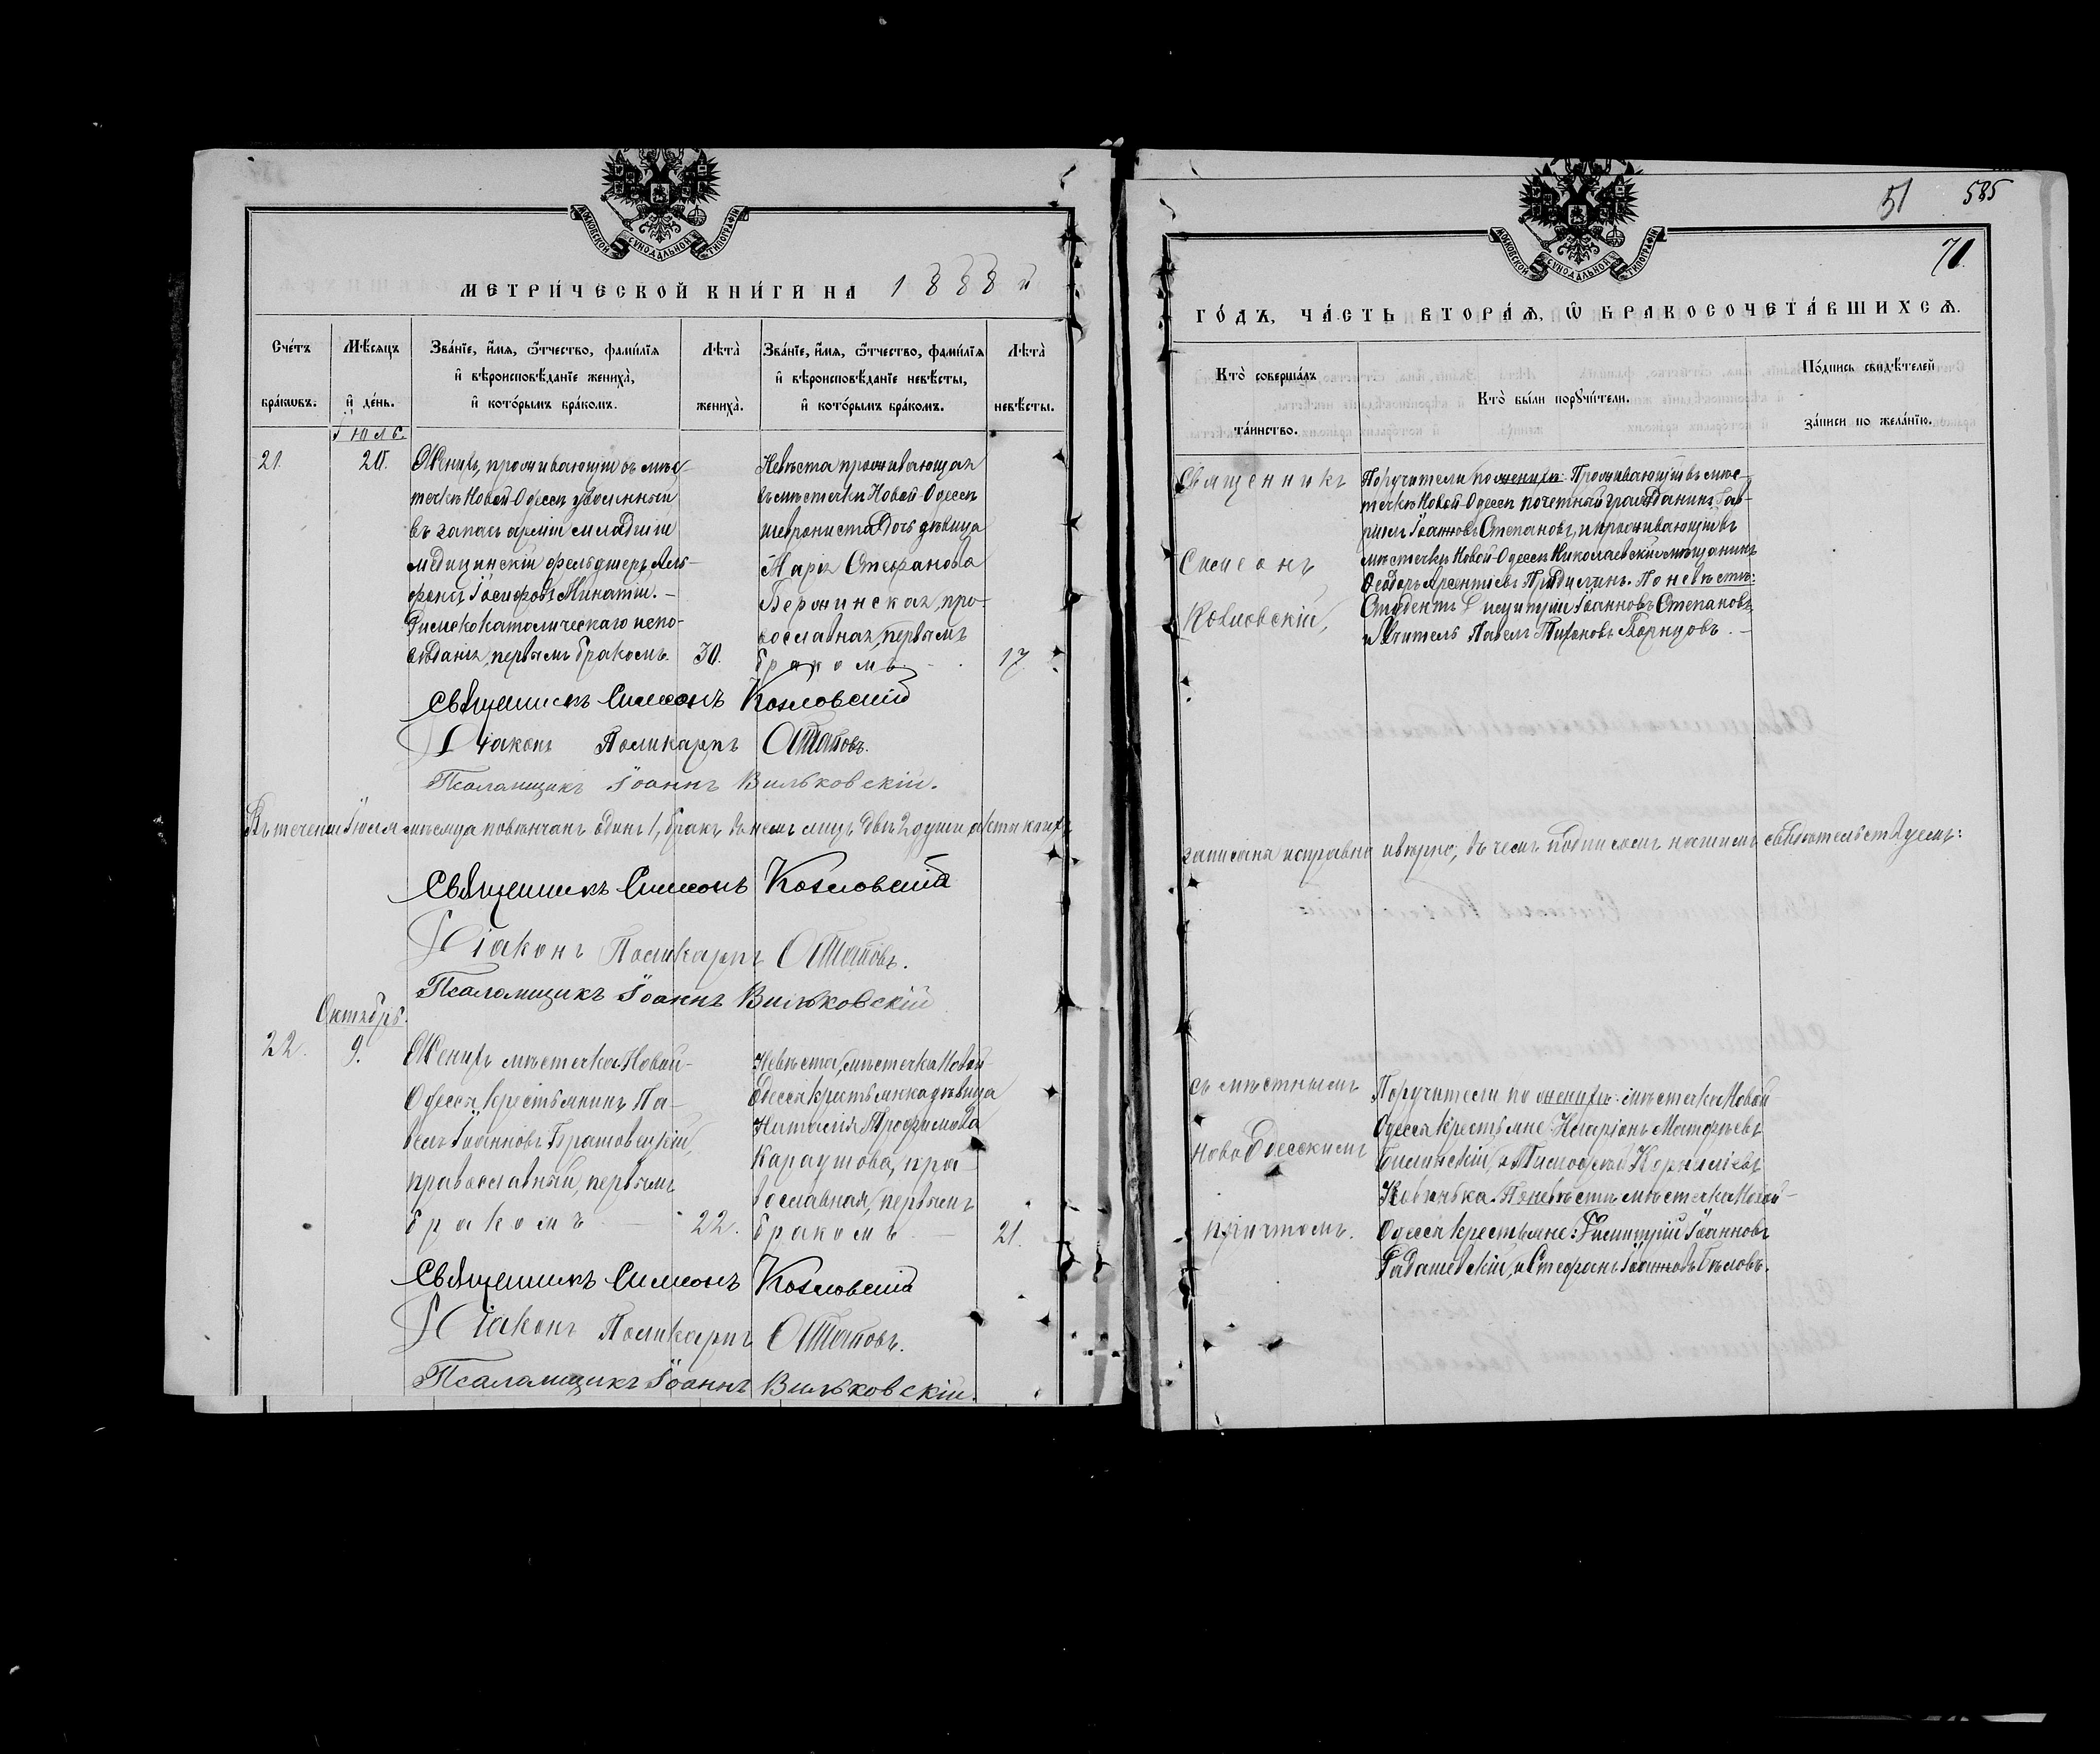 МОСКОВСКОЙ СѴНОДАЛЬНОЙ ТИПОГРАФІИ
МЕТРИ́ЧЕСКОЙ КНИ́ГИ НА 1888 й
Сче́тъ бра́кѡвъ.
Мѣ́сѧцъ и҆ де́нь.
Зва́нїе, и҆́мѧ, ѻ҆́тчество, фами́лїѧ и҆ вѣроисповѣ́данїе жениха̀, и҆ кото́рымъ бра́комъ.
Лѣта̀ жениха̀.
Зва́нїе, и҆́мѧ, ѻ҆́тчество, фами́лїѧ и҆ вѣроисповѣ́данїе невѣ́сты, и҆ кото́рымъ бра́комъ.
Лѣта̀ невѣ́сты.
Іюль.
21.
20.
Женихъ, проживающій въ мѣс-
течкѣ Новой-Одессѣ уволенный
въ запасъ арміи младшій
медицинскій фельдшеръ Аль-
фонсъ Іосифовъ
Римскокатолическаго испо-
вѣданія, первымъ бракомъ.
30.
Невѣста проживающая
въ мѣстечкѣ Новой-Одессѣ
дочь дѣвица
Марія Стефанова
пра-
вославная, первымъ
бракомъ.
17.
Священникъ Симеонъ Козловскій
Діаконъ Поликарпъ
Псаломщикъ Іоаннъ Вильковскій.
Въ теченіи Іюля мѣсяца повѣнчанъ одинъ 1, бракъ въ немъ лицъ двѣ 2 души,
Священникъ Симеонъ Козловскій
Діаконъ Поликарпъ
Псаломщикъ Іоаннъ Вильковскій
Октябрь.
22.
9.
Женихъ мѣстечка Новой-
Одессы, крестьянинъ Па-
велъ Іоанновъ
православный, первымъ
бракомъ
22.
Невѣста, мѣстечка Новой
Одессы крестьянка дѣвица
Наталія Трофимова
Караушова, пра-
вославная, первымъ
бракомъ
21.
Священникъ Симеонъ Козловскій
Діаконъ Поликарпъ
Псаломщикъ Іоаннъ Вильковскій.
51 585
МОСКОВСКОЙ СѴНОДАЛЬНОЙ ТИПОГРАФІИ
71.
ГО́ДЪ, ЧА́СТЬ ВТОРА́Ѧ, Ѡ҆ БРАКОСОЧЕТА́ВШИХСѦ.
Кто̀ соверша́лъ та́инство.
Кто̀ бы́ли порꙋчи́тели.
По́дпись свидѣ́телей за́писи по жела́нїю.
Священникъ
Симеонъ
Козловскій,
Поручители по женихѣ: Проживающій въ мѣс-
течкѣ Новой-Одессѣ почетный гражданинъ Гав-
ріилъ Іоанновъ Степановъ, и проживающій въ
мѣстечкѣ Новой-Одессѣ Николаевскій мѣщанинъ
Ѳеодоръ Арсентіевъ По невѣстѣ:
Студентъ Іоанновъ Степановъ,
и Учитель Павелъ Тихоновъ
записана исправно и вѣрно, въ чемъ подписомъ нашимъ свидѣтельствуемъ:
съ мѣстнымъ
НовоОдесскимъ
причтомъ.
Поручители по женихѣ: мѣстечка Новой
Одессы крестьяне: Иларіонъ Матфѣевъ
Билинскій, и Тимофей Корниліевъ
По невѣстѣ мѣстечка Новой-
Одессы крестьяне: Іоанновъ
и Стефанъ Іоанновъ Бѣловъ.